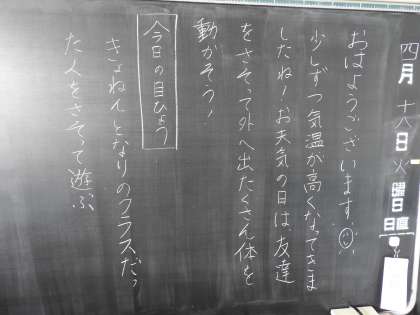 四月十八日火曜日
日直
おはようございます。
少しずつ気温が高くなってきま
したね！お天気の日は友達
をさそって外へ出たくさん体を
動かそう！
今日の目ひょう
きょねんとなりのクラスだっ
た人をさそって遊ぶ